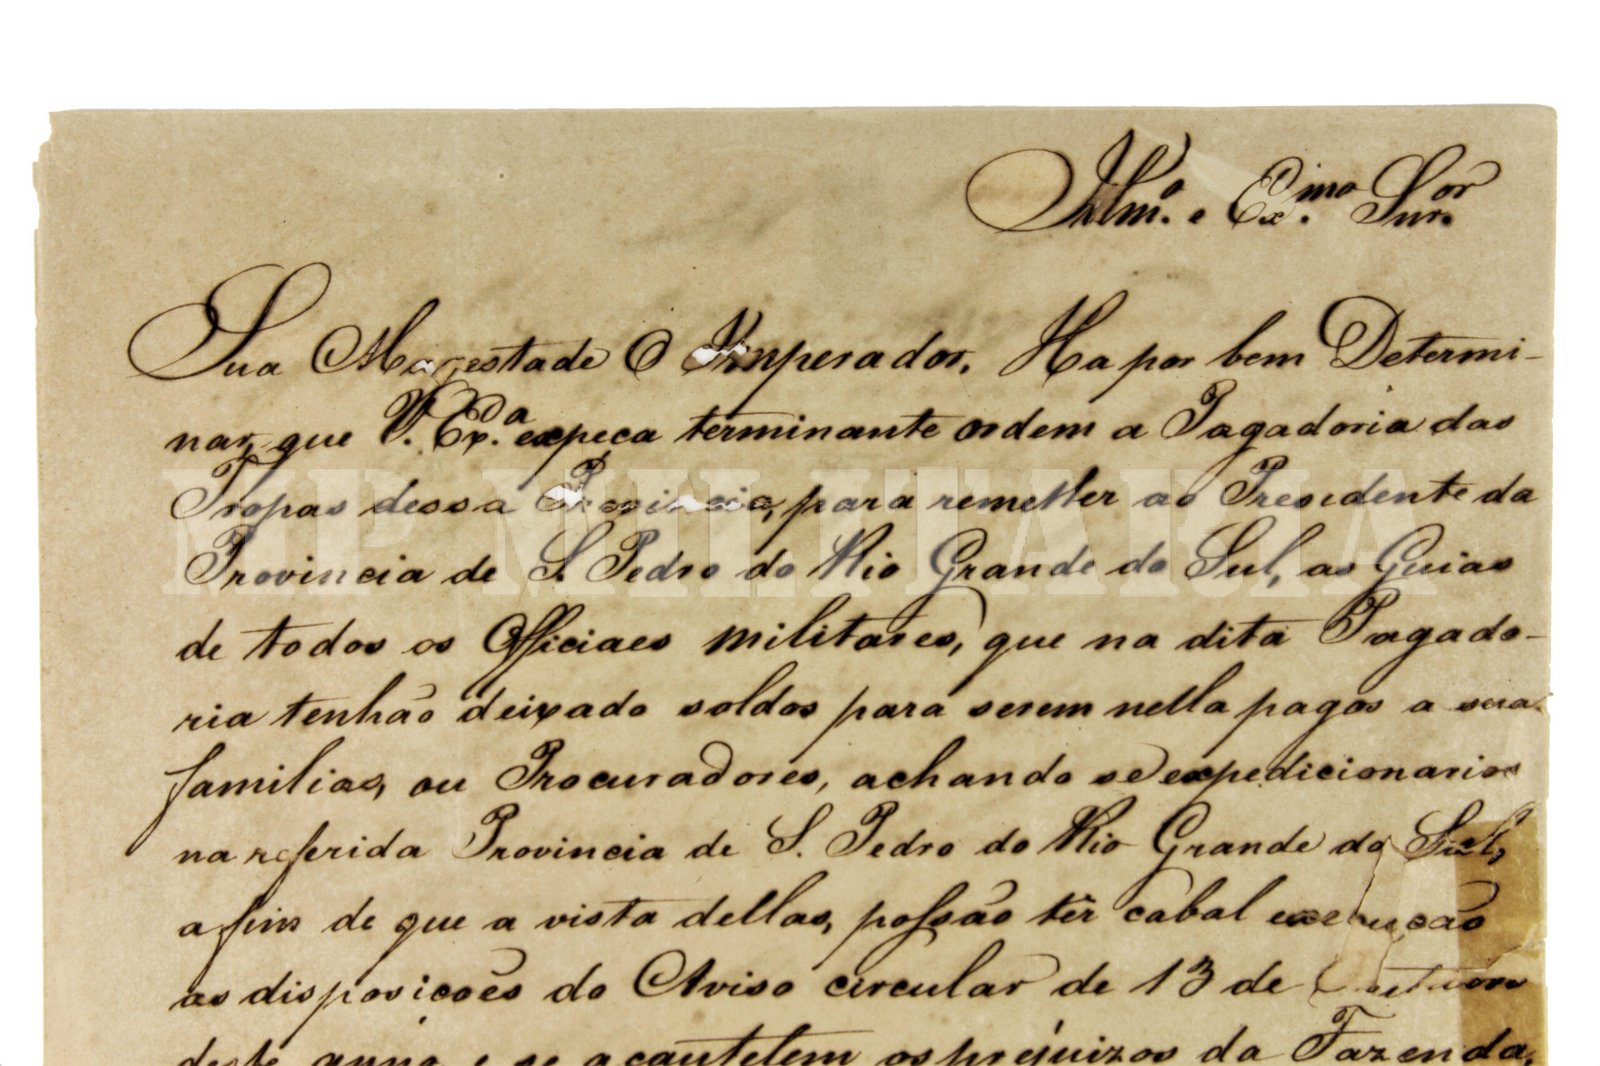 Illm.º e Ex.mo Snr.or
Sua Magestade O Imperador, Ha por bem Determi-
nar, que V. Ex.a expeca terminante ordem a Pagadoria das
Tropas dessa Provincia, para remetter ao Presidente da
MP MILITARIA
Provincia de S. Pedro do Rio Grande do Sul, as Guias
de todos os Officiaes militares, que na dita Pagado-
ria tenhão deixado soldos para serem nella pagos a suas
familias, ou Procuradores, achando se expedicionarios
na referida Provincia de S. Pedro do Rio Grande do Sul,
a fim de que a vista dellas, possão têr cabal execução
as disposicões do Aviso circular de 13 de
deste anno, e se acautelem os prejuizos da Fazenda,